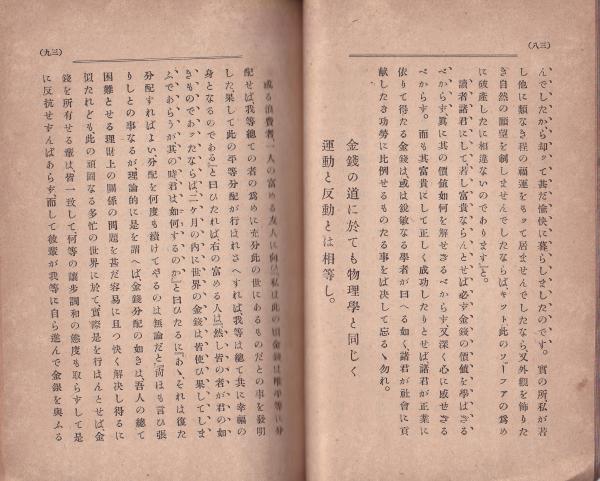 （三八）
んでしたから却ツて甚だ愉快に暮らしましたのです。實の所私が若
し他に類なき程の福運をもツて居ませんでしたなら、又外觀を飾りた
き自然の願望を制しませんでしたならば、キツト此のソーフアの爲め
に破産したに相違ないのであります』と。
讀者諸君にして若し富貴ならんとせば必す金錢の價値を學ばざる
べからす、眞に其の價値如何を解せざるべからす又深く心に感せざる
べからす。而も其富貴にして正しく成功したりとせば諸君が正業に
依りて得たる金錢は、或は銳敏なる學者が曰へる如く、諸君が社會に貢
獻したる功勞に比例せるものたる事をば決して忘るゝ勿れ。
金錢の道に於ても物理學と同じく
運動と反動とは相等し。
（三九）
或る浪費者一人の富める友人に向ひ『私は此の頃金錢は唯平等に分
配せば我等總ての者の爲めに充分此の世にあるものだとの事を發明
した、果して此の平等分配が行はれさへすれば、我等は總て共に幸福の
身となるのである』と曰ひたれば右の富める人は『然し皆の者が君の如
きものであツたならば、二ケ月の內に世界の金錢は皆使ひ果してしま
ふであらうが其の時君は如何するのか』と曰ひたるに『おゝそれは復た
分配すればよい、分配を何度も續けてやるのは無論だと』尙ほも言ひ張
りしとの事なるが理論的に是を謂へば金錢分配の如きは吾人の總て
困難とせる理財上の關係の問題を甚だ容易に且つ快く解決し得るに
似たれども此の頑固なる多忙の世界に於て、實際是を行はんとせば、金
錢を所有せる輩は皆一致して何等の讓步調和の態度も取らすして是
に反抗せすんばあらす、而して彼輩が我等に自ら進んで金銀を與ふる